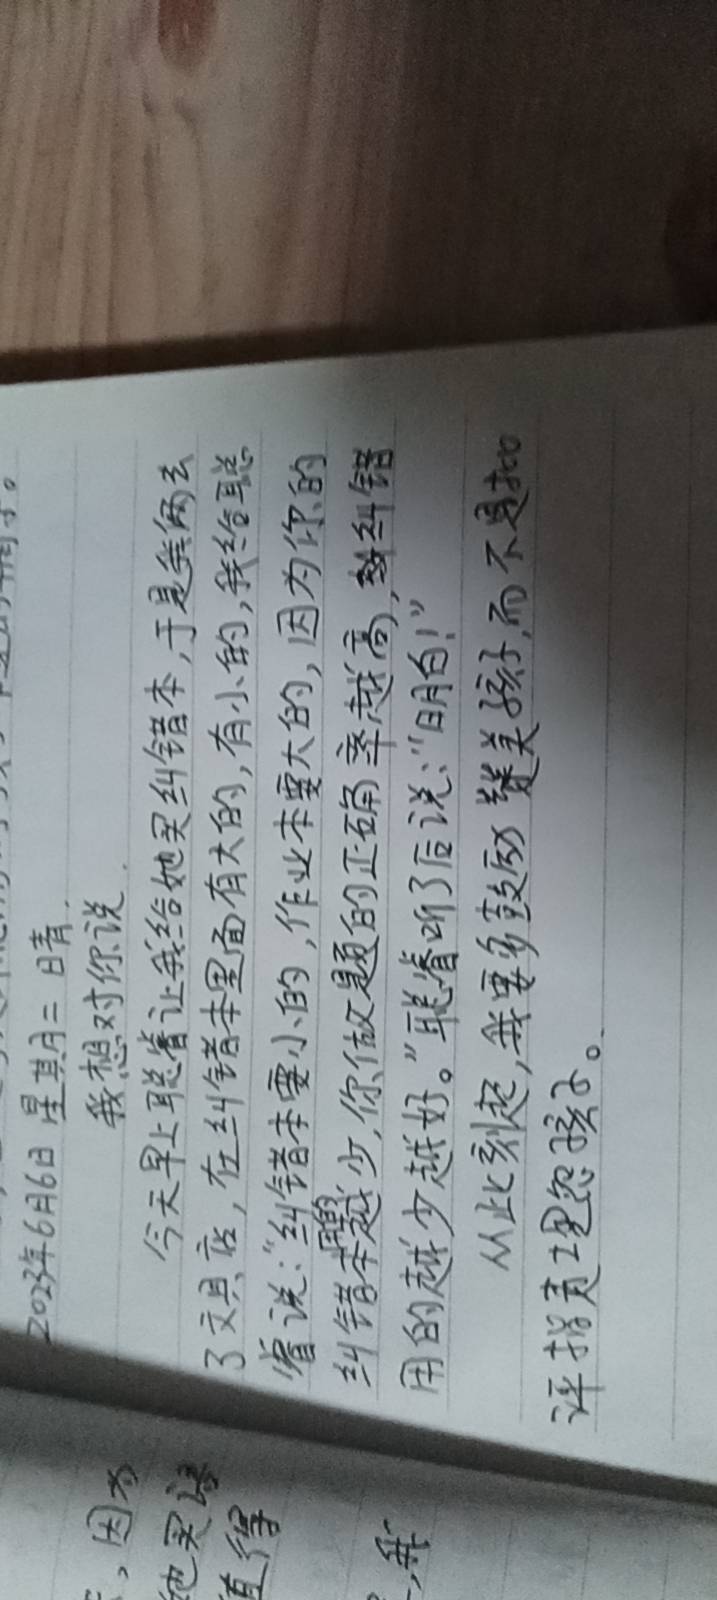 2023年6月6日 星其月二 日晴.
我想对你说.
今天早上聪睿让我给她买纠错本,于是我俩去
了文具店,在纠错本里面有大的,有小的,我给聪
睿说:"纠错本要小的,作业本要大的,因为你的
纠错本用的越少,你做题的正确率越高,纠错
用的越少越好。"聪睿听了后说:"明白!"
从此刻起,我要多鼓励赞美孩子,而不是批
评指责埋怨孩子。
,因为
她买
值得